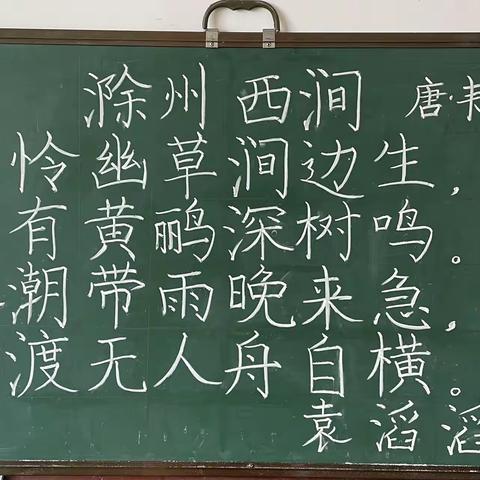 滁州西涧 唐·韦
怜幽草涧边生，
有黄鹂深树鸣。
潮带雨晚来急，
渡无人舟自横。
袁滔滔